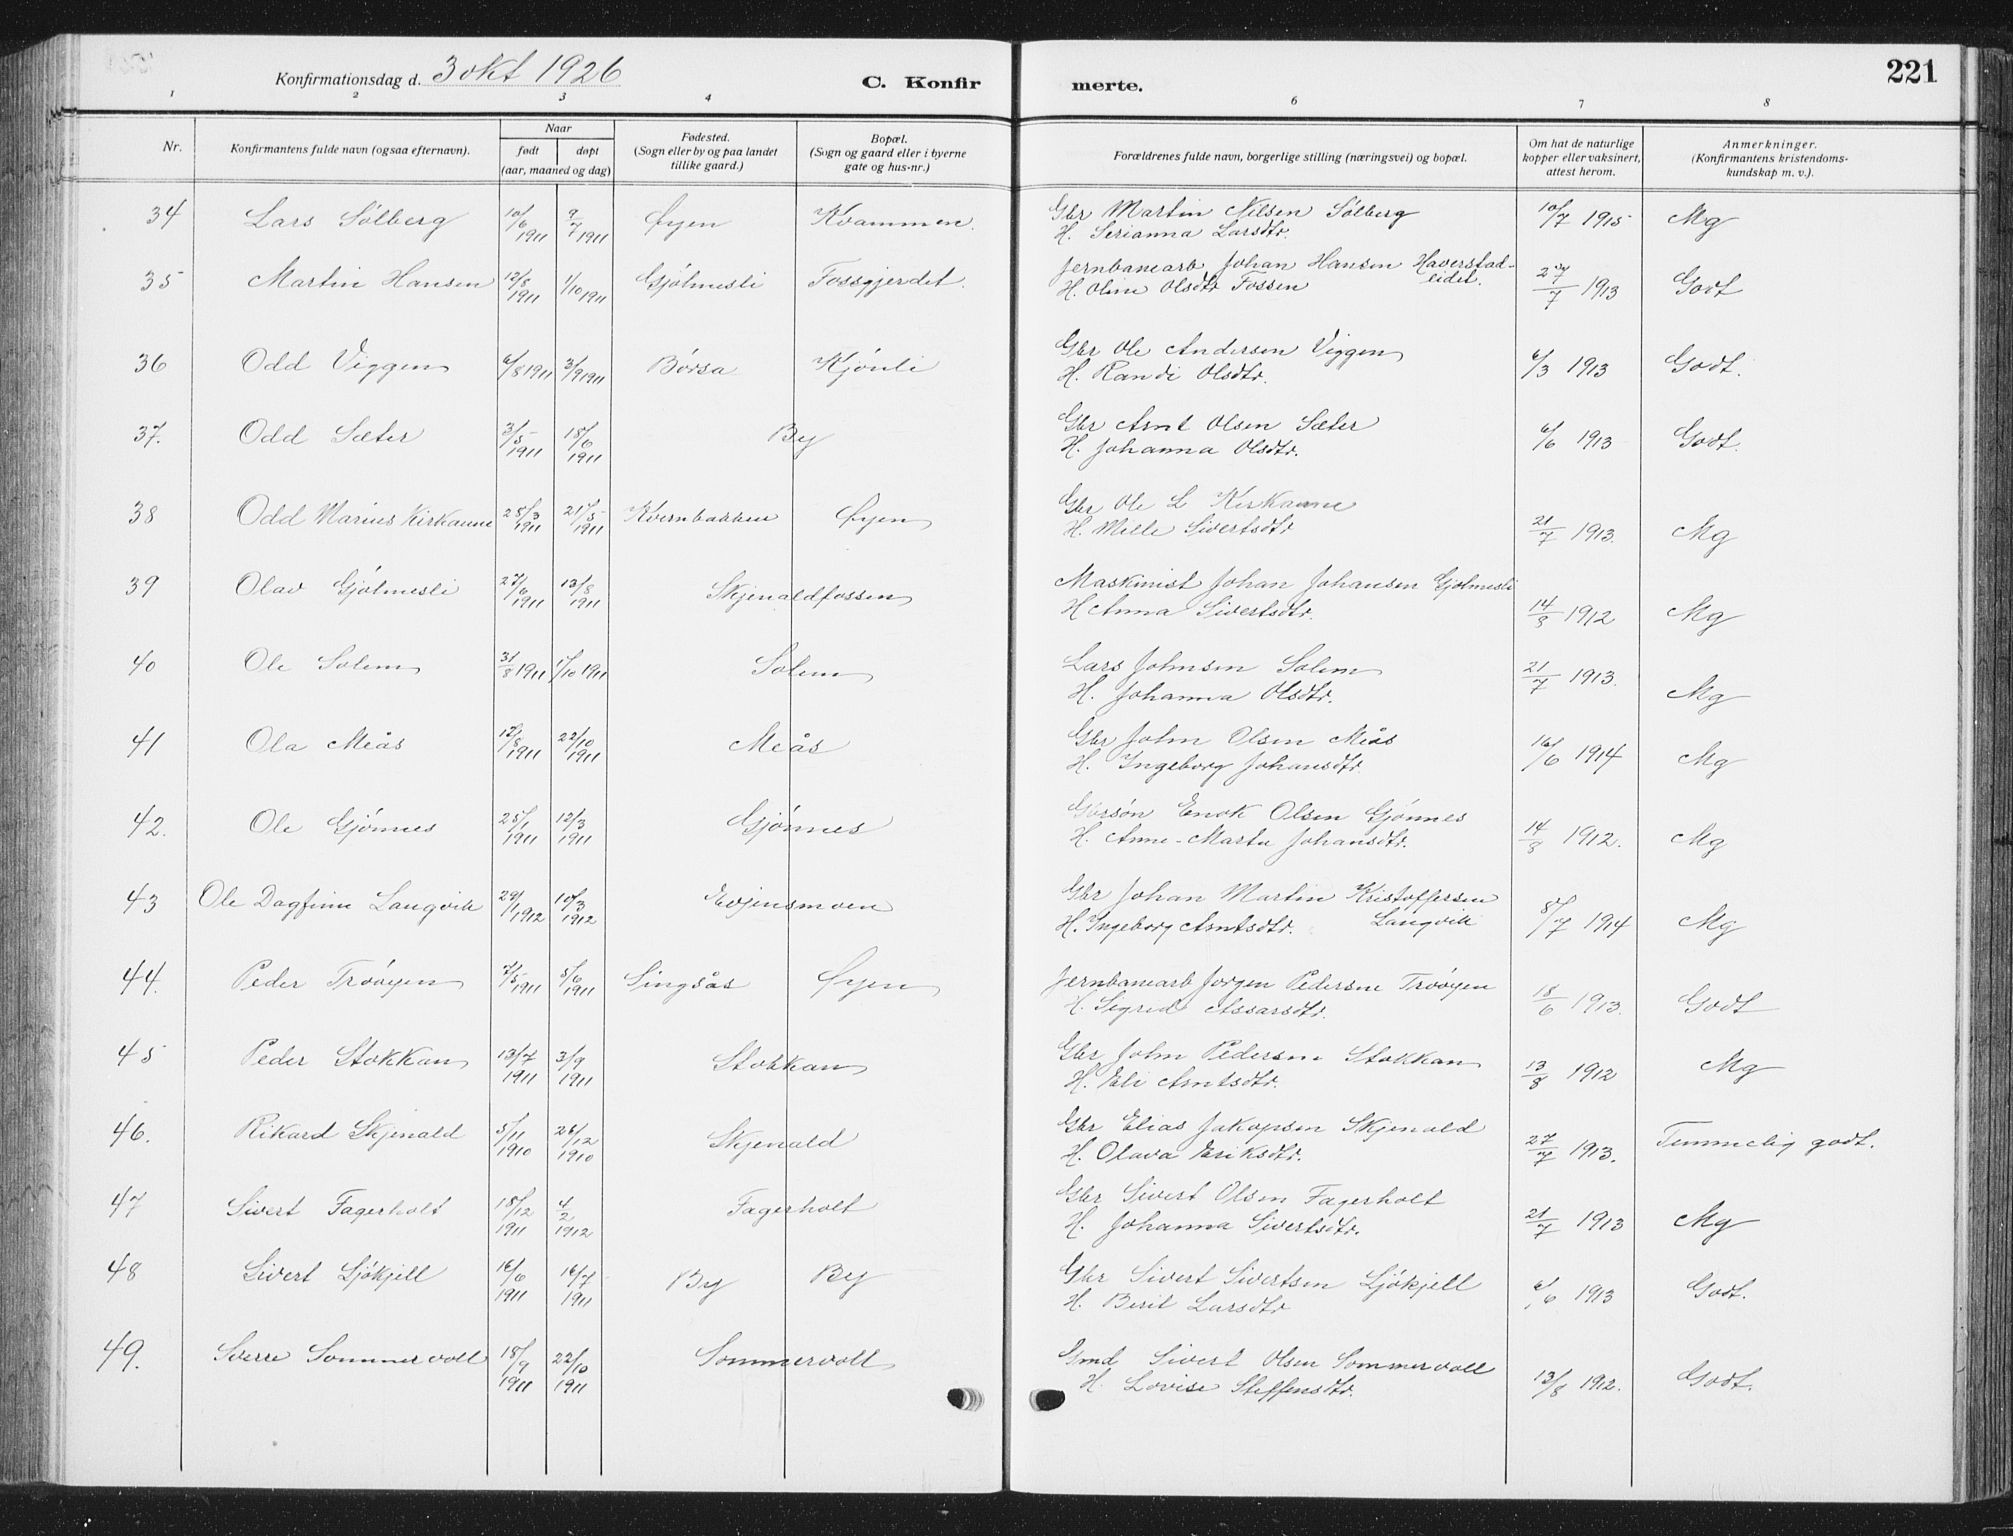 Konfirmationsdag d. 3 okt 1926
C. Konfirmerte.
221
1 2 3 4 6 7 8
Nr.
Konfirmantens fulde navn (ogsaa efternavn).
Naar
født døpt
(aar, maaned og dag)
Fødested.
(Sogn eller by og paa landet
tillike gaard.)
Bopæl.
(Sogn og gaard eller i byerne
gate og hus-nr.)
Forældrenes fulde navn, borgerlige stilling (næringsvei) og bopæl.
Om hat de naturlige
kopper eller vaksinert,
attest herom.
Anmerkninger.
(Konfirmantens kristendoms-
kundskap m. v.).
34 Lars Sølberg 10/6 1911 9/7 1911 Øyen Kvammen. Gbr Martin Nilsen Sølberg 10/7 1915 Mg
H. Serianna Larsdtr.
35 Martin Hansen 12/8 1911 1/10 1911 Gjølmesli Fossgjerdet. Jernbanearb Johan Hansen Haverstad-
eidet. H. Oline Olsdtr Fossen 27/7 1913 Godt
36 Odd Viggen 6/8 1911 3/9 1911 Børsa Kjønli Gbr Ole Andersen Viggen 6/3 1913 Godt.
H. Randi Olsdtr.
37. Odd Sæter 31/5 1911 18/6 1911 By Gbr Arnt Olsen Sæter 6/6 1913 Godt.
H. Johanna Olsdtr.
38 Odd Marius Kirkaune 25/3 1911 21/5 1911 Kvernbakken Øyen Gbr Ole L Kirkaune
H. Mille Sivertsdtr 21/7 1913. Mg
39 Olav Gjølmesli 27/6 1911 13/8 1911 Skjenaldfossen Maskinist Johan Johansen Gjølmesli
H Anna Sivertsdtr. 14/8 1912 Mg
40 Ole Solem 31/8 1911 1/10 1911 Solem Lars Johnsen Solem 21/7 1913.
H. Johanna Olsdtr. Mg
41 Ola Meås 12/8 1911 22/10 1911 Meås Gbr John Olsen Meås 16/6 1914 Mg
H. Ingeborg Johansdtr.
42. Ole Gjønnes 25/1 1911 12/3 1911 Gjønnes Gbrsøn Enok Olsen Gjønnes 14/8 1912. Mg
H. Anne-Marta Johansdtr.
43 Ole Dagfinn Langvik 29/1 1912 10/3 1912 Evjensmoen Gbr Johan Martin Kristoffersen
H. Ingeborg Arntsdtr. Langvik 8/7 1914 Mg
44. Peder Trøøyen 7/5 1911 5/6 1911 Singsås Øyen Jernbanearb Jørgen Pedersne Trøøyen
H. Sigrid Assarsdtr. 18/6 1913. Godt
45 Peder Stokkan 13/7 1911 3/9 1911 Stokkan Gbr John Pedersen Stokkan
H. Eli Arntsdtr. 13/8 1912 Mg
46. Rikard Skjenald 5/11 1910 26/12 1910 Skjenald Gbr Elias Jakopsen Skjenald
H. Olava Eriksdtr. 27/7 1913. Temmelig godt.
47 Sivert Fagerholt 18/12 1911 4/2 1912 Fagerholt Gbr Sivert Olsen Fagerholt
H. Johanna Sivertsdtr. 21/7 1913 Mg
48 Sivert Sjøkjell 16/6 1911 16/7 1911 By By Gbr Sivert Sivertsen Sjøkjell
H. Berit Larsdtr 6/6 1913 Godt.
49. Sverre Sommervoll 18/9 1911 22/10 1911 Sommervoll Gmd Sivert Olsen Sommervoll
H. Lovise Steffensdtr. 13/8 1912. Godt.